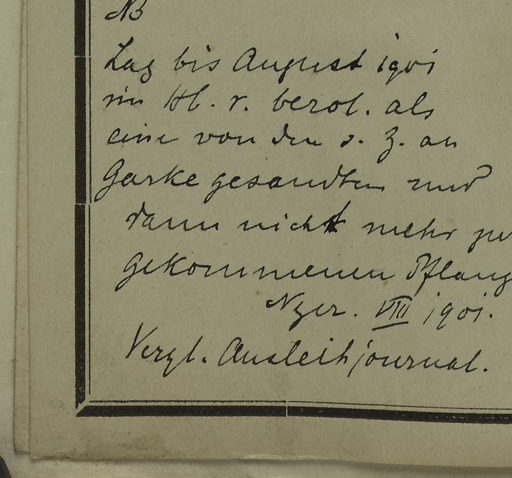 NB
Lag bis August 1901
im Hb. r. berol. als
eine von den s. Z. an
Garke gesandten und
dann nicht mehr zu
gekommenen Pflanz
VIII 1901.
Vergl. Ausleihjournal.